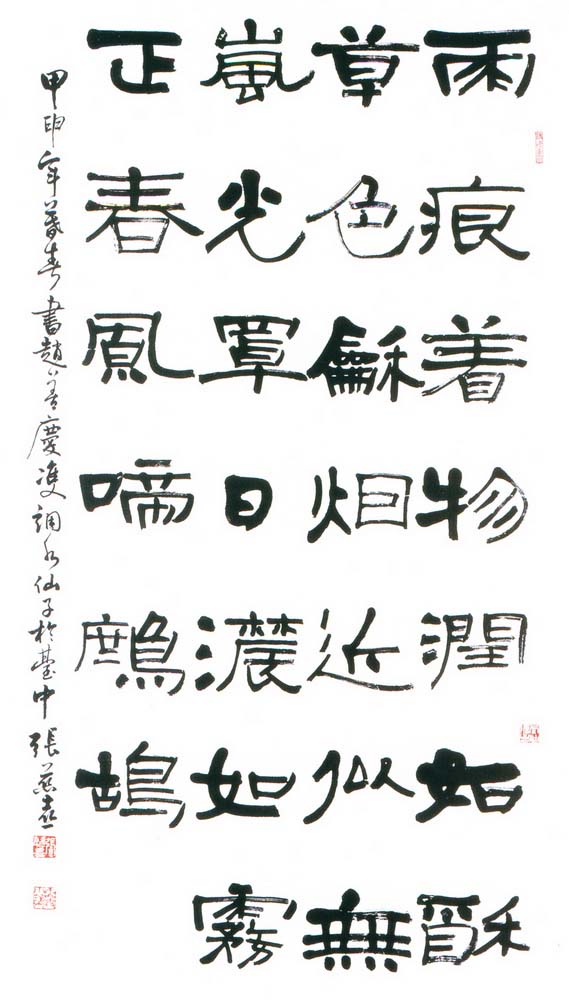 雨痕着物潤如酥
草色龢烟近似無
嵐光罩日濃如霧
正春風啼鷓鴣
甲申年暮春書趙善慶雙調水仙子於臺中張